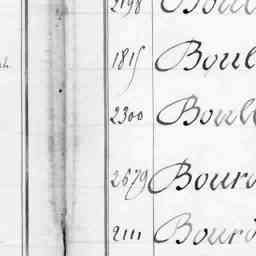 2198 Boul
1815 Boul
2300 Boul
2679 Bour
2111 Bour